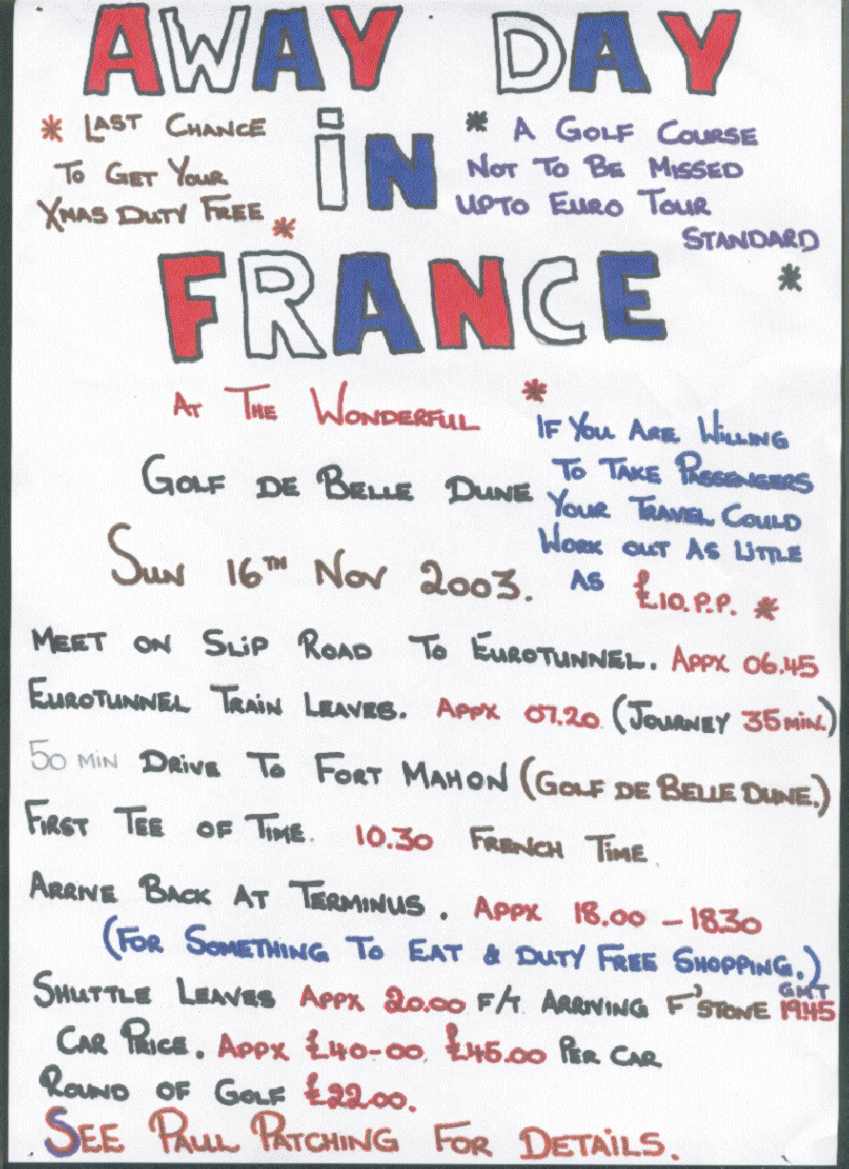 AWAY DAY
* LAST CHANCE
TO GET YOUR
XMAS DUTY FREE *
iN
* A GOLF COURSE
NOT TO BE MISSED
UPTO EURO TOUR
STANDARD
*
FRANCE
AT THE WONDERFUL
GOLF DE BELLE DUNE
*
IF YOU ARE WILLING
TO TAKE PASSENGERS
YOUR TRAVEL COULD
WORK OUT AS LITTLE
AS £10.P.P. *
SUN 16TH NOV 2003.
MEET ON SLIP ROAD TO EUROTUNNEL. APPX 06.45
EUROTUNNEL TRAIN LEAVES. APPX 07.20 (JOURNEY 35 MIN.)
50 MIN DRIVE TO FORT MAHON (GOLF DE BELLE DUNE.)
FIRST TEE OF TIME. 10.30 FRENCH TIME.
ARRIVE BACK AT TERMINUS. APPX 18.00 - 18.30
(FOR SOMETHING TO EAT & DUTY FREE SHOPPING.)
SHUTTLE LEAVES APPX 20.00 F/T ARRIVING F'STONE 19.45 GMT
CAR PRICE. APPX £40-00. £45.00 PER CAR
ROUND OF GOLF £22.00.
SEE PAUL PATCHING FOR DETAILS.